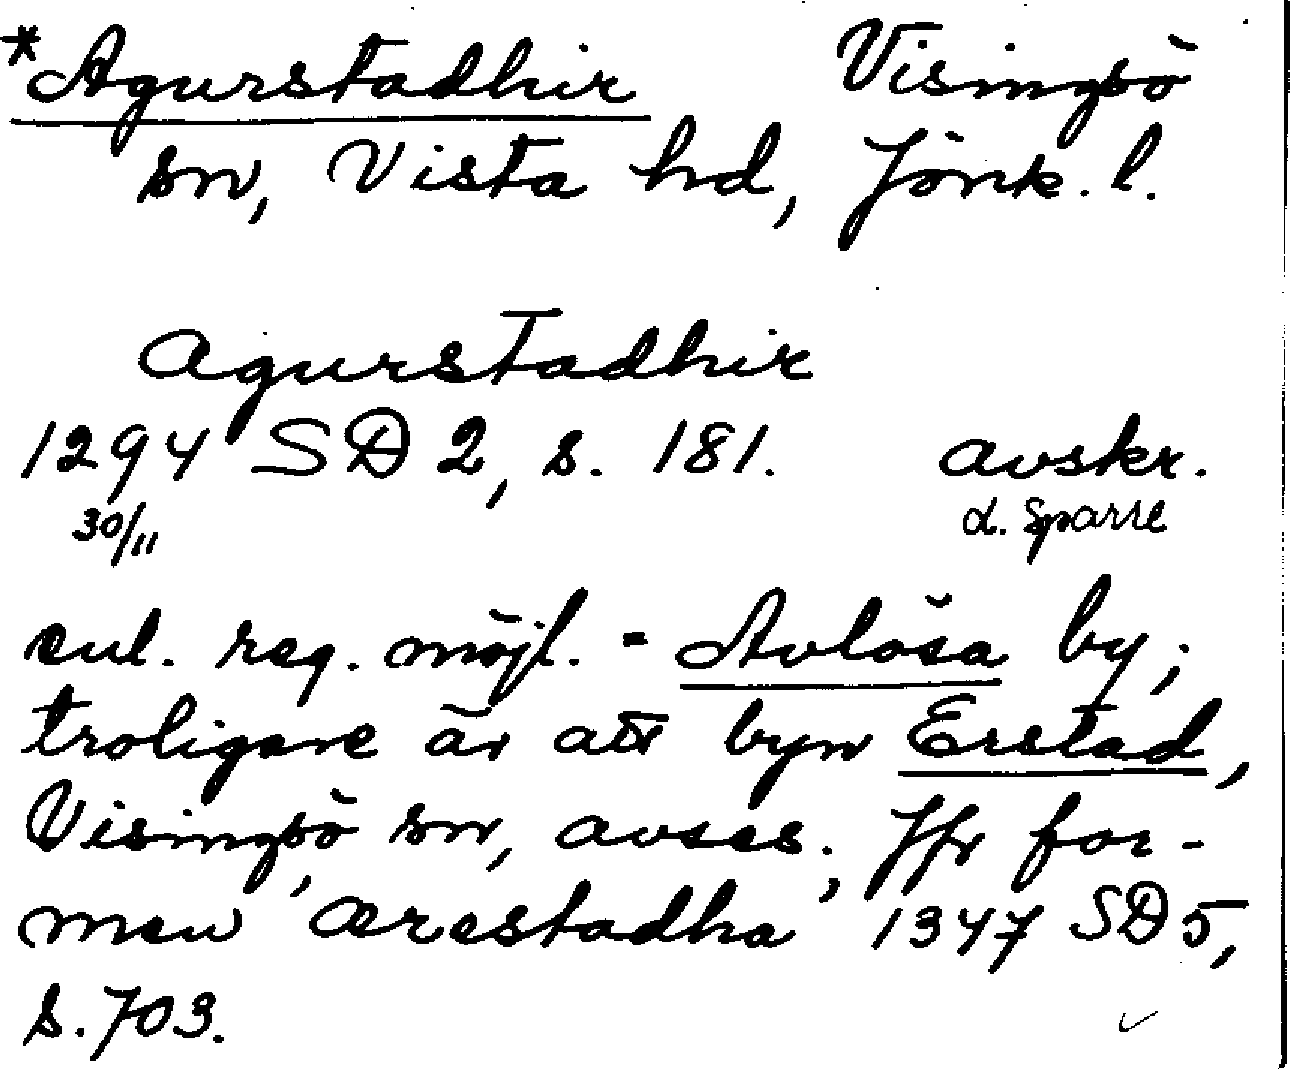 *Agurstadhir Visingsö
sn, Vista hd, Jönk. l.
Agurstadhir
1294 SD 2, s. 181. avskr.
30/11 d. Sparre
enl. reg. möjl. = Avlösa by;
troligare är att byn Erstad,
Visingsö sn, avses; Jfr for-
men 'ærestadha' 1347 SD 5,
s. 703.